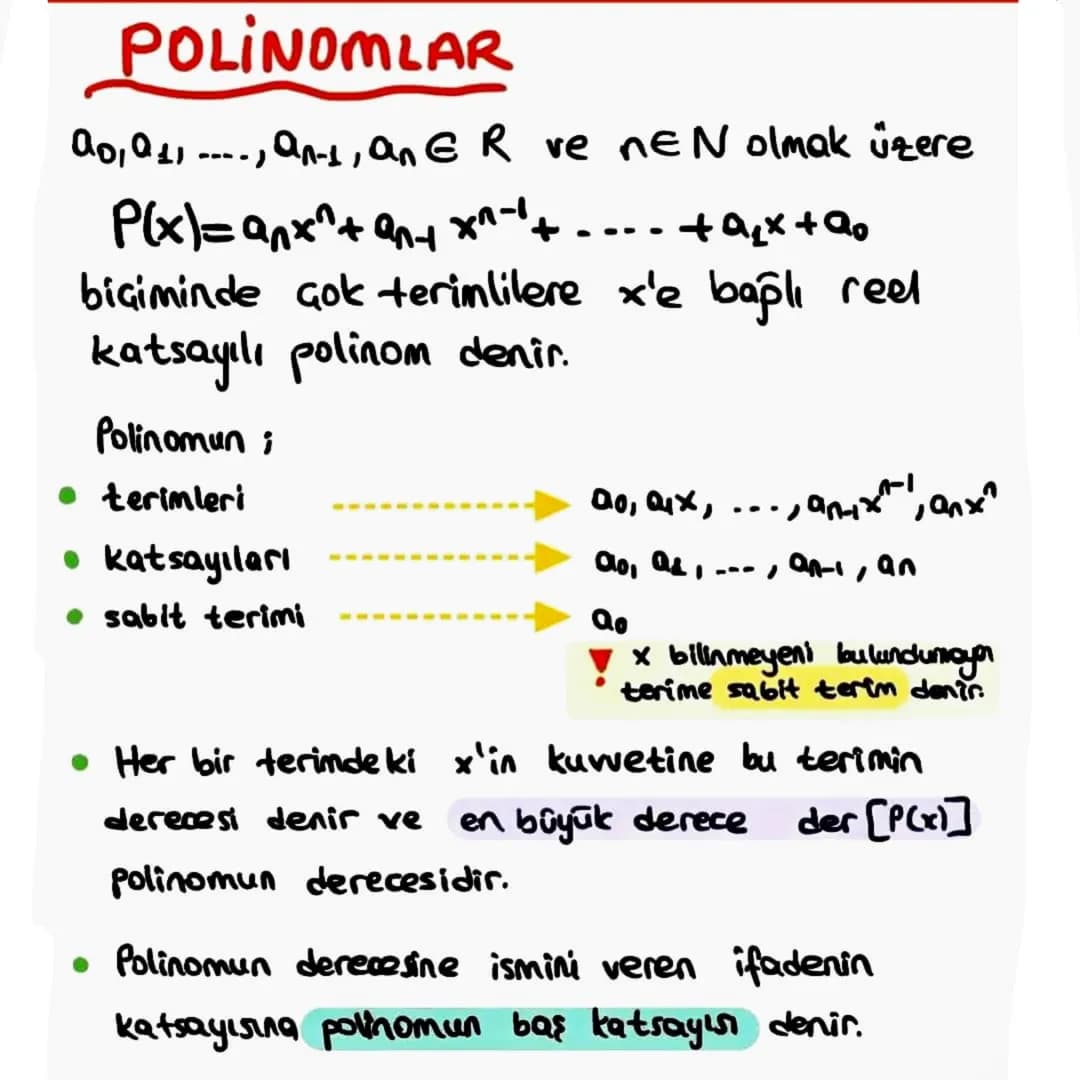 POLİNOMLAR
a₀, a₁, ----, aₙ₋₁, aₙ ∈ R ve n∈N olmak üzere
P(x)=aₙxⁿ+aₙ₋₁xⁿ⁻¹+----+a₁x+a₀
biçiminde çok terimlilere x'e bağlı reel
katsayılı polinom denir.
Polinomun ;
terimleri a₀, a₁x, ---, aₙ₋₁xⁿ⁻¹, aₙxⁿ
katsayıları a₀, a₁, ---, aₙ₋₁, aₙ
sabit terimi a₀
! x bilinmeyeni bulundurmayan
terime sabit terim denir.
Her bir terimdeki x'in kuvvetine bu terimin
derecesi denir ve en büyük derece der [P(x)]
polinomun derecesidir.
Polinomun derecesine ismini veren ifadenin
katsayısına polinomun baş katsayısı denir.